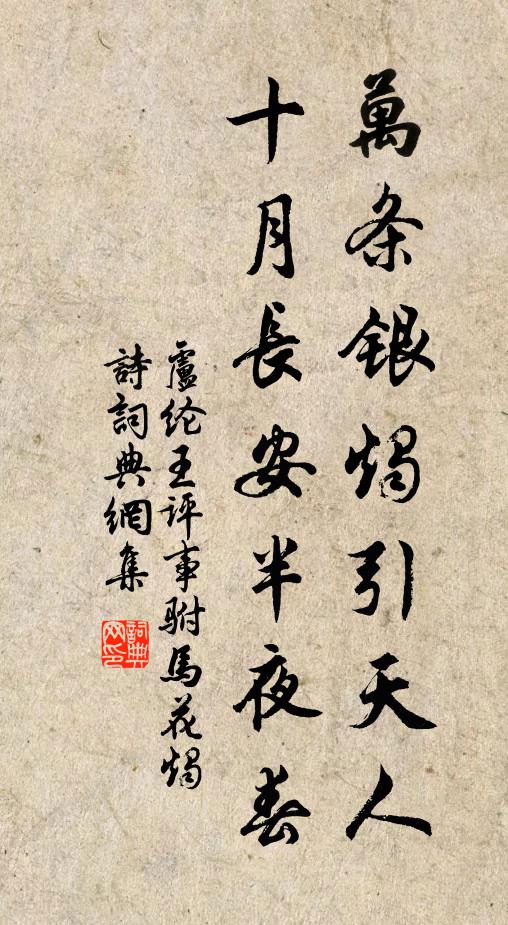 萬条銀燭引天人
十月長安半夜春
盧纶王評事駙馬花燭
詩詞典網集
詞典網印